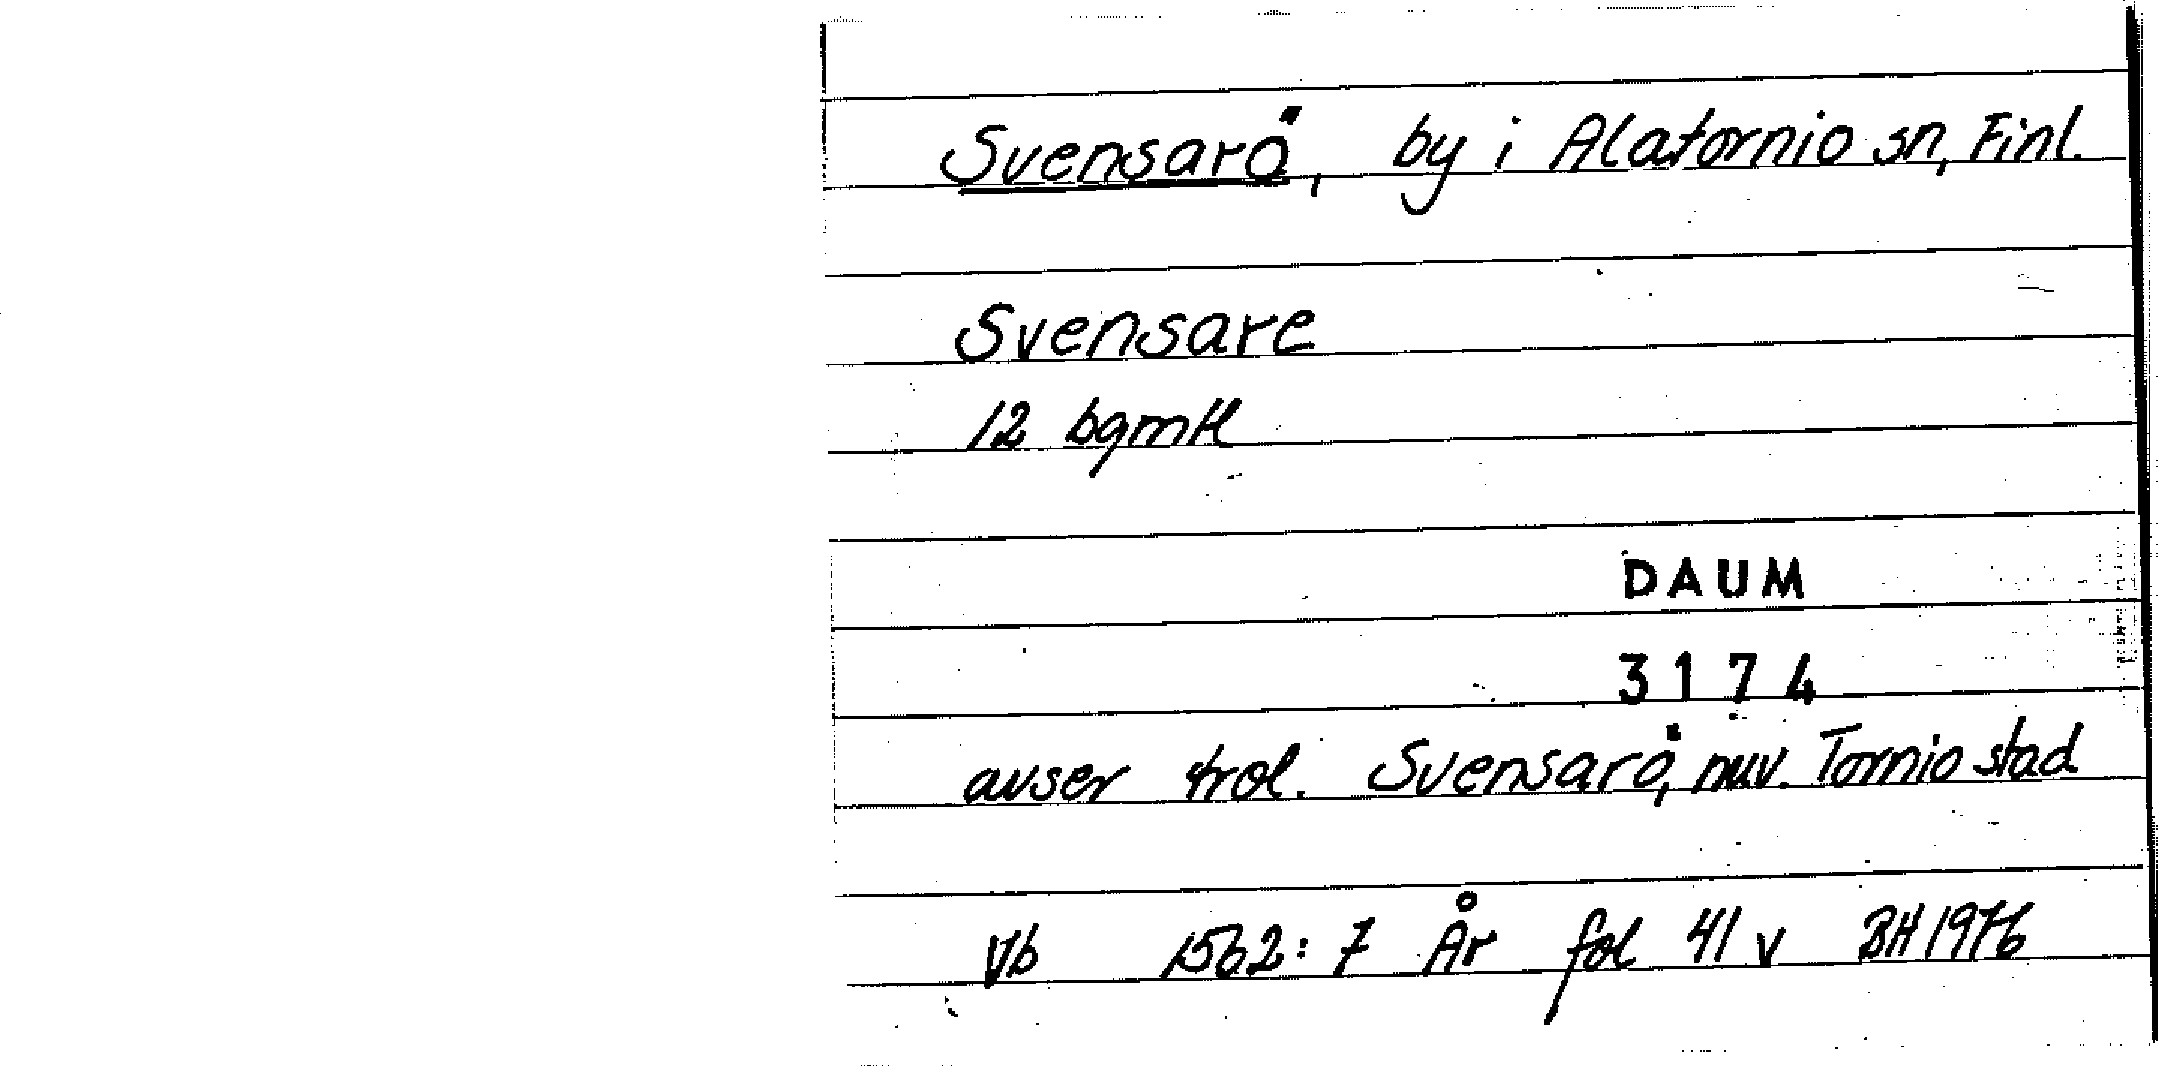 Svensarö, by i Alatornio sn, Finl.
Svensare
12 bgmtl
DAUM
3174
avser trol. Svensarö, nuv. Tornio stad
Vb 1562:7 År fol 41 v BH 1976